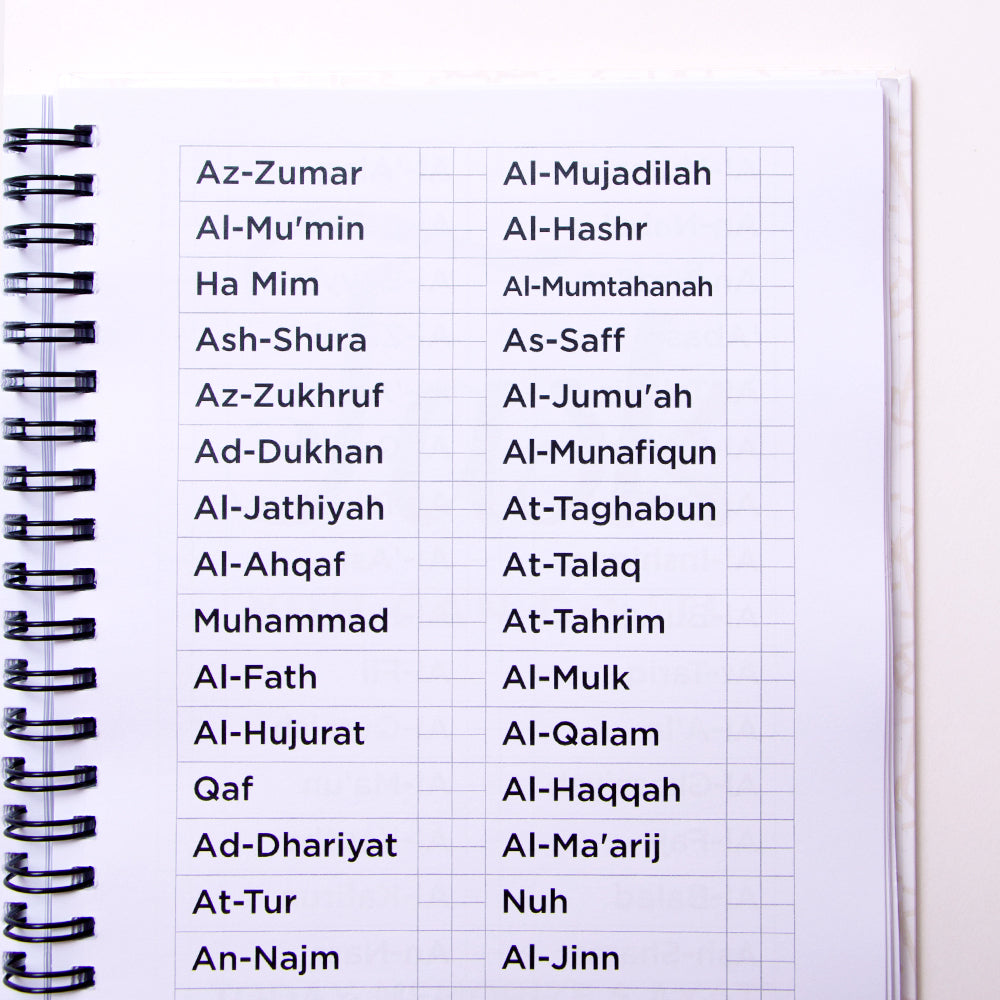 Az-Zumar
Al-Mu'min
Ha Mim
Ash-Shura
Az-Zukhruf
Ad-Dukhan
Al-Jathiyah
Al-Ahqaf
Muhammad
Al-Fath
Al-Hujurat
Qaf
Ad-Dhariyat
At-Tur
An-Najm
Al-Mujadilah
Al-Hashr
Al-Mumtahanah
As-Saff
Al-Jumu'ah
Al-Munafiqun
At-Taghabun
At-Talaq
At-Tahrim
Al-Mulk
Al-Qalam
Al-Haqqah
Al-Ma'arij
Nuh
Al-Jinn